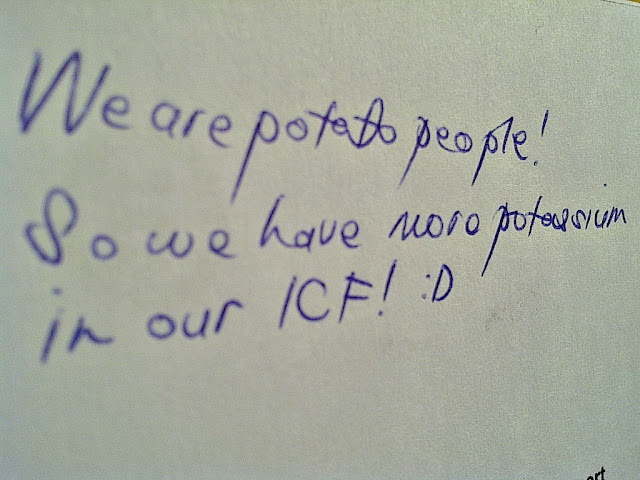 We are potato people!
So we have more potassium
in our ICF! :D